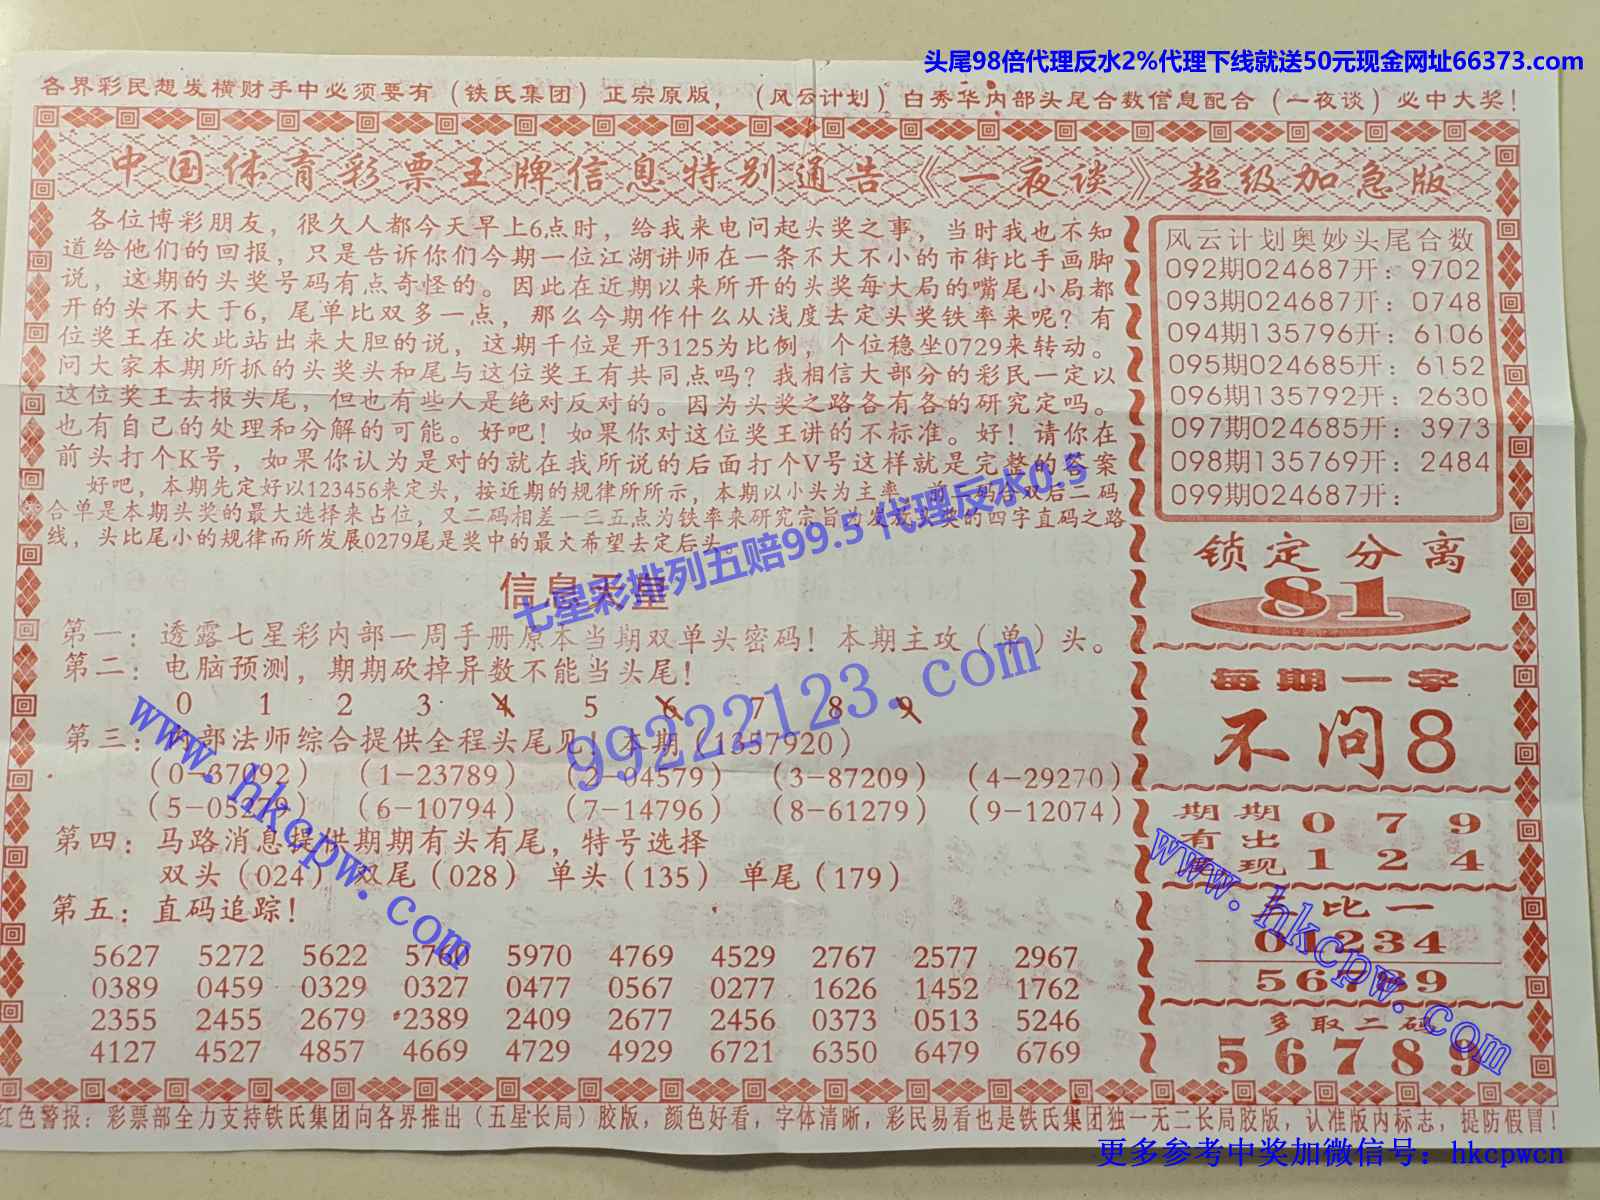 头尾98倍代理反水2%代理下线就送50元现金网址66373.com
各界彩民想发横财手中必须要有（铁氏集团）正宗原版，（风云计划）白秀华内部头尾合数信息配合（一夜谈）必中大奖！
中国体育彩票王牌信息特别通告《一夜谈》超级加急版
各位博彩朋友，很久人都今天早上6点时，给我来电问起头奖之事，当时我也不知
道给他们的回报，只是告诉你们今期一位江湖讲师在一条不大不小的市街比手画脚
说，这期的头奖号码有点奇怪的。因此在近期以来所开的头奖每大局的嘴尾小局都
开的头不大于6，尾单比双多一点，那么今期作什么从浅度去定头奖铁率来呢？有
位奖王在次此站出来大胆的说，这期千位是开3125为比例，个位稳坐0729来转动。
问大家本期所抓的头奖头和尾与这位奖王有共同点吗？我相信大部分的彩民一定以
这位奖王去报头尾，但也有些人是绝对反对的。因为头奖之路各有各的研究定吗。
也有自己的处理和分解的可能。好吧！如果你对这位奖王讲的不标准。好！请你在
前头打个K号，如果你认为是对的就在我所说的后面打个V号这样就是完整的答案
好吧，本期先定好以123456来定头，按近期的规律所所示，本期以小头为主率，前二码合双后二码
合单是本期头奖的最大选择来占位，又二码相差一二五点为铁率来研究宗旨的发放头奖的四字直码之路
线，头比尾小的规律而所发展0279尾是奖中的最大希望去定后头。
七星彩排列五赔99.5 代理反水0.5
信息天皇
第一：透露七星彩内部一周手册原本当期双单头密码！本期主攻（单）头。
第二：电脑预测，期期砍掉异数不能当头尾！
0 1 2 3 4 5 6 7 8 9
99222123.com
www.hkcpw.com
第三：内部法师综合提供全程头尾见！本期（1357920）
（0-37092）（1-23789）（2-04579）（3-87209）（4-29270）
（5-05279）（6-10794）（7-14796）（8-61279）（9-12074）
第四：马路消息提供期期有头有尾，特号选择
双头（024）双尾（028） 单头（135） 单尾（179）
第五：直码追踪！
5627 5272 5622 5760 5970 4769 4529 2767 2577 2967
0389 0459 0329 0327 0477 0567 0277 1626 1452 1762
2355 2455 2679 2389 2409 2677 2456 0373 0513 5246
4127 4527 4857 4669 4729 4929 6721 6350 6479 6769
风云计划奥妙头尾合数
092期024687开：9702
093期024687开：0748
094期135796开：6106
095期024685开：6152
096期135792开：2630
097期024685开：3973
098期135769开：2484
099期024687开：
锁定分离
81
每期一字
不问8
期期 0 7 9
有出
现 1 2 4
www.hkcpw.com
比一
01234
56789
多取二码
56789
红色警报：彩票部全力支持铁氏集团向各界推出（五星长局）胶版，颜色好看，字体清晰，彩民易看也是铁氏集团独一无二长局胶版，认准版内标志，提防假冒！
更多参考中奖加微信号：hkcpwcn